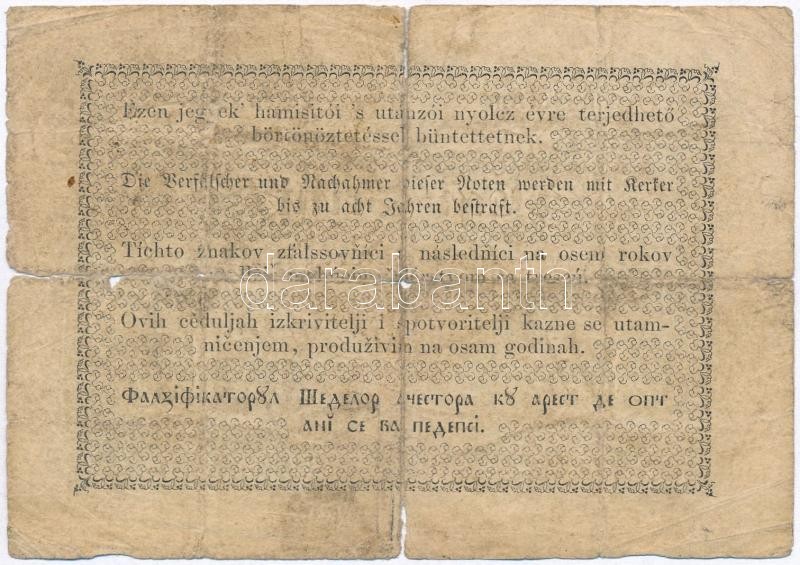 Ezen jegyek' hamisítói 's utánzói nyolcz évre terjedhető
börtönöztetéssel büntettetnek.
Die Verfälscher und Nachahmer dieser Noten werden mit Kerker
bis zu acht Jahren bestraft.
Tíchto znakov zfalssovňíci následňíci na osem rokov
darabanth
Ovih cèduljah izkrivitelji i spotvoritelji kazne se utam-
ničenjem, produživim na osam godinah.
Фалзіфікаторꙋл Шеделор ачестора кꙋ арест де опт
анї се ва педепсі.